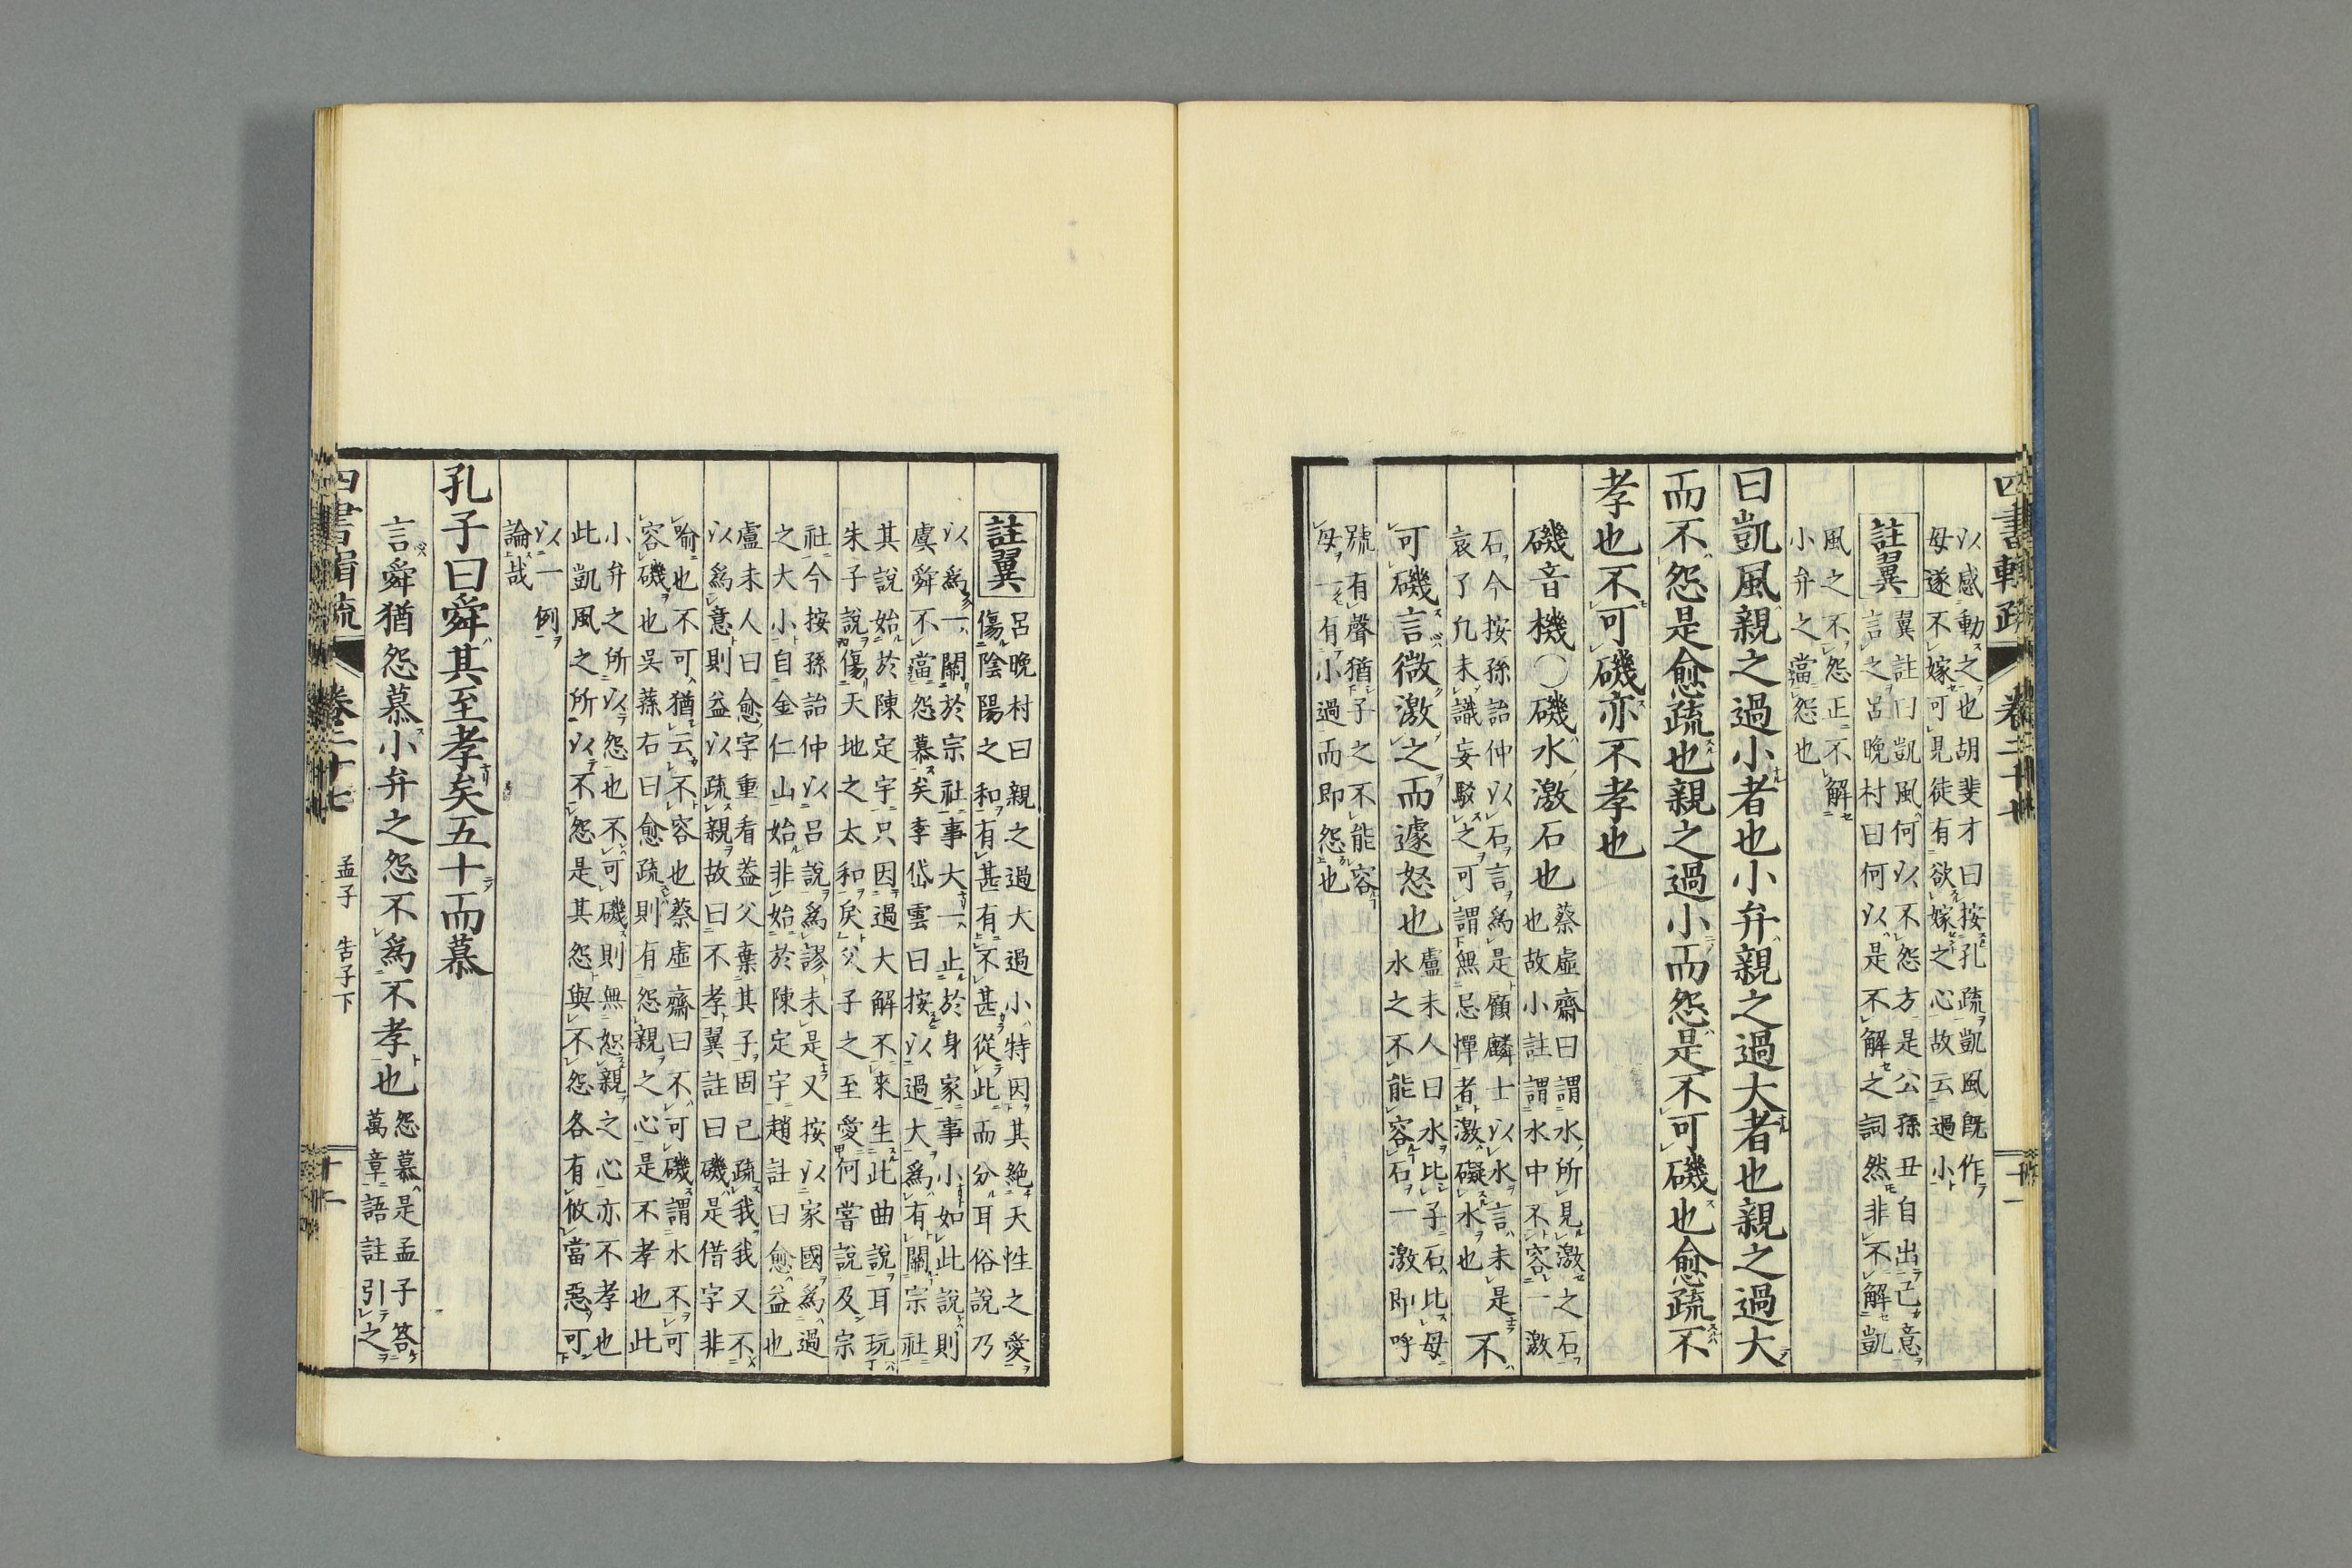 四書輯疏 卷二十七 十一
以感動之也胡斐才曰按孔疏凱風既作
母遂不嫁可見徒有欲嫁之心故云過小
註翼 翼註曰凱風何以不怨方是公孫丑自出己意
言之呂晚村曰何以是不解之詞然非不解凱
風之不怨正不解
小弁之當怨也
曰凱風親之過小者也小弁親之過大者也親之過大
而不怨是愈疏也親之過小而怨是不可磯也愈疏不
孝也不可磯亦不孝也
磯音機○磯水激石也 蔡虛齋曰謂水所見激之石
也故小註謂水中不容一激
石今按孫詒仲以石言為是顧麟士以水言未是
哀了凡未識妄駁之可謂無忌憚者激礙水也
不
可磯言微激之而遽怒也 盧未人曰水比子石比母
水之不能容石一激即呼
號有聲猶子之不能容
母一有小過而即怨也
註翼 呂晚村曰親之過大過小特因其絶天性之愛
傷陰陽之和有甚有不甚從此而分耳俗說乃
以為一關於宗社事大一止於身家事小如此說則
虞舜不當怨慕矣李岱雲曰按以過大為有關宗社
其說始於陳定宇只因過大解不來生此曲說耳玩
朱子說傷天地之太和戾父子之至愛何嘗說及宗
社今按孫詒仲以呂說為謬未是又按以家國為過
之大小自金仁山始非始於陳定宇趙註曰愈益也
盧未人曰愈字重看葢父棄其子固已疏我我又不
以為意則益以疏親故曰不孝翼註曰磯是借字非
喻也不可猶云不容也蔡虛齋曰不可磯謂水不可
容磯也吳蓀右曰愈疏則有怨親之心是不孝也此
小弁之所以怨也不可磯則無恕親之心亦不孝也
此凱風之所以不怨是其怨與不怨各有攸當惡可
以一例
論哉
孔子曰舜其至孝矣五十而慕
言舜猶怨慕小弁之怨不為不孝也 怨慕是孟子答
萬章語註引之
四書輯疏 卷二十七 孟子 告子下 十一